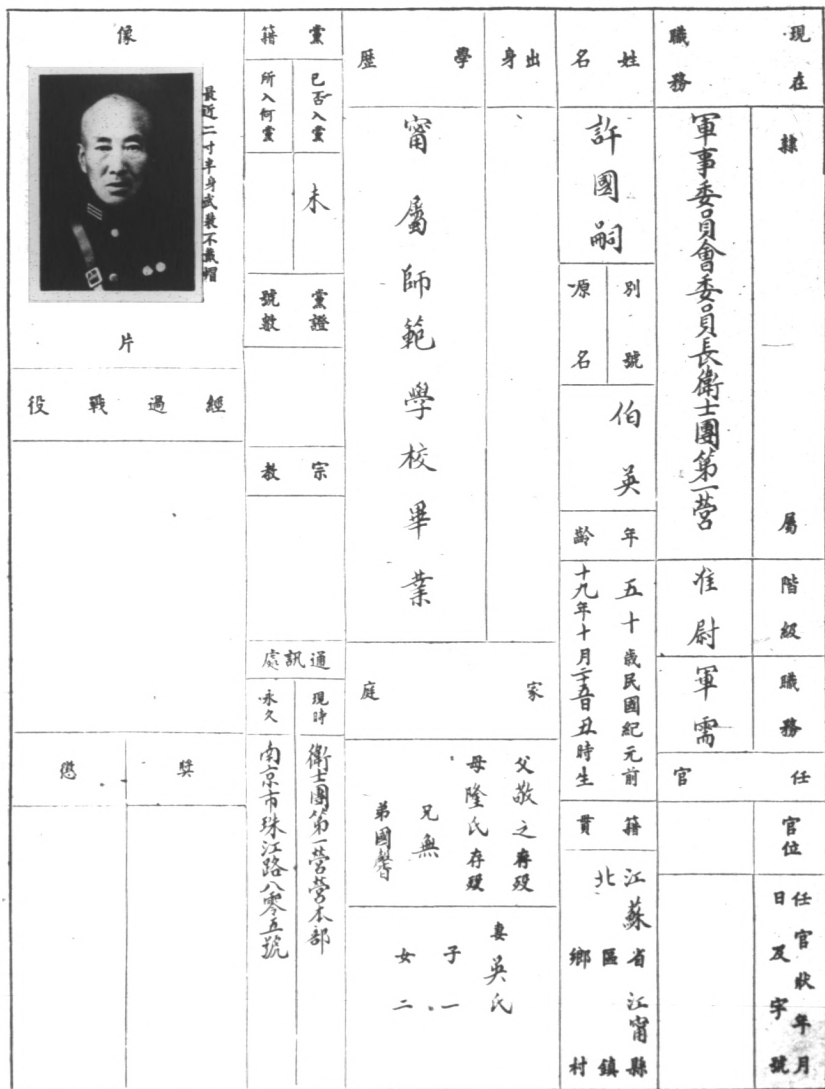 現在職務
隸屬
軍事委員會委員長衛士團第一營
階級
准尉
職務
軍需
任官
官位
任官狀年月日及字號
姓名
許國嗣
別號
原名
伯英
年齡
五十歲民國紀元前
十九年十月二十五日丑時生
籍貫
江蘇省江甯縣
北區鎮
鄉村
出身
學歷
甯屬師範學校畢業
家庭
父敬之存歿
母隆氏存歿
兄無
弟國馨
妻吳氏
子一
女二
黨籍
已否入黨
未
所入何黨
黨證號數
宗教
通訊處
現時
衛士團第一營營本部
永久
南京市珠江路八零五號
像片
最近二寸半身武裝不戴帽
經過戰役
獎
懲